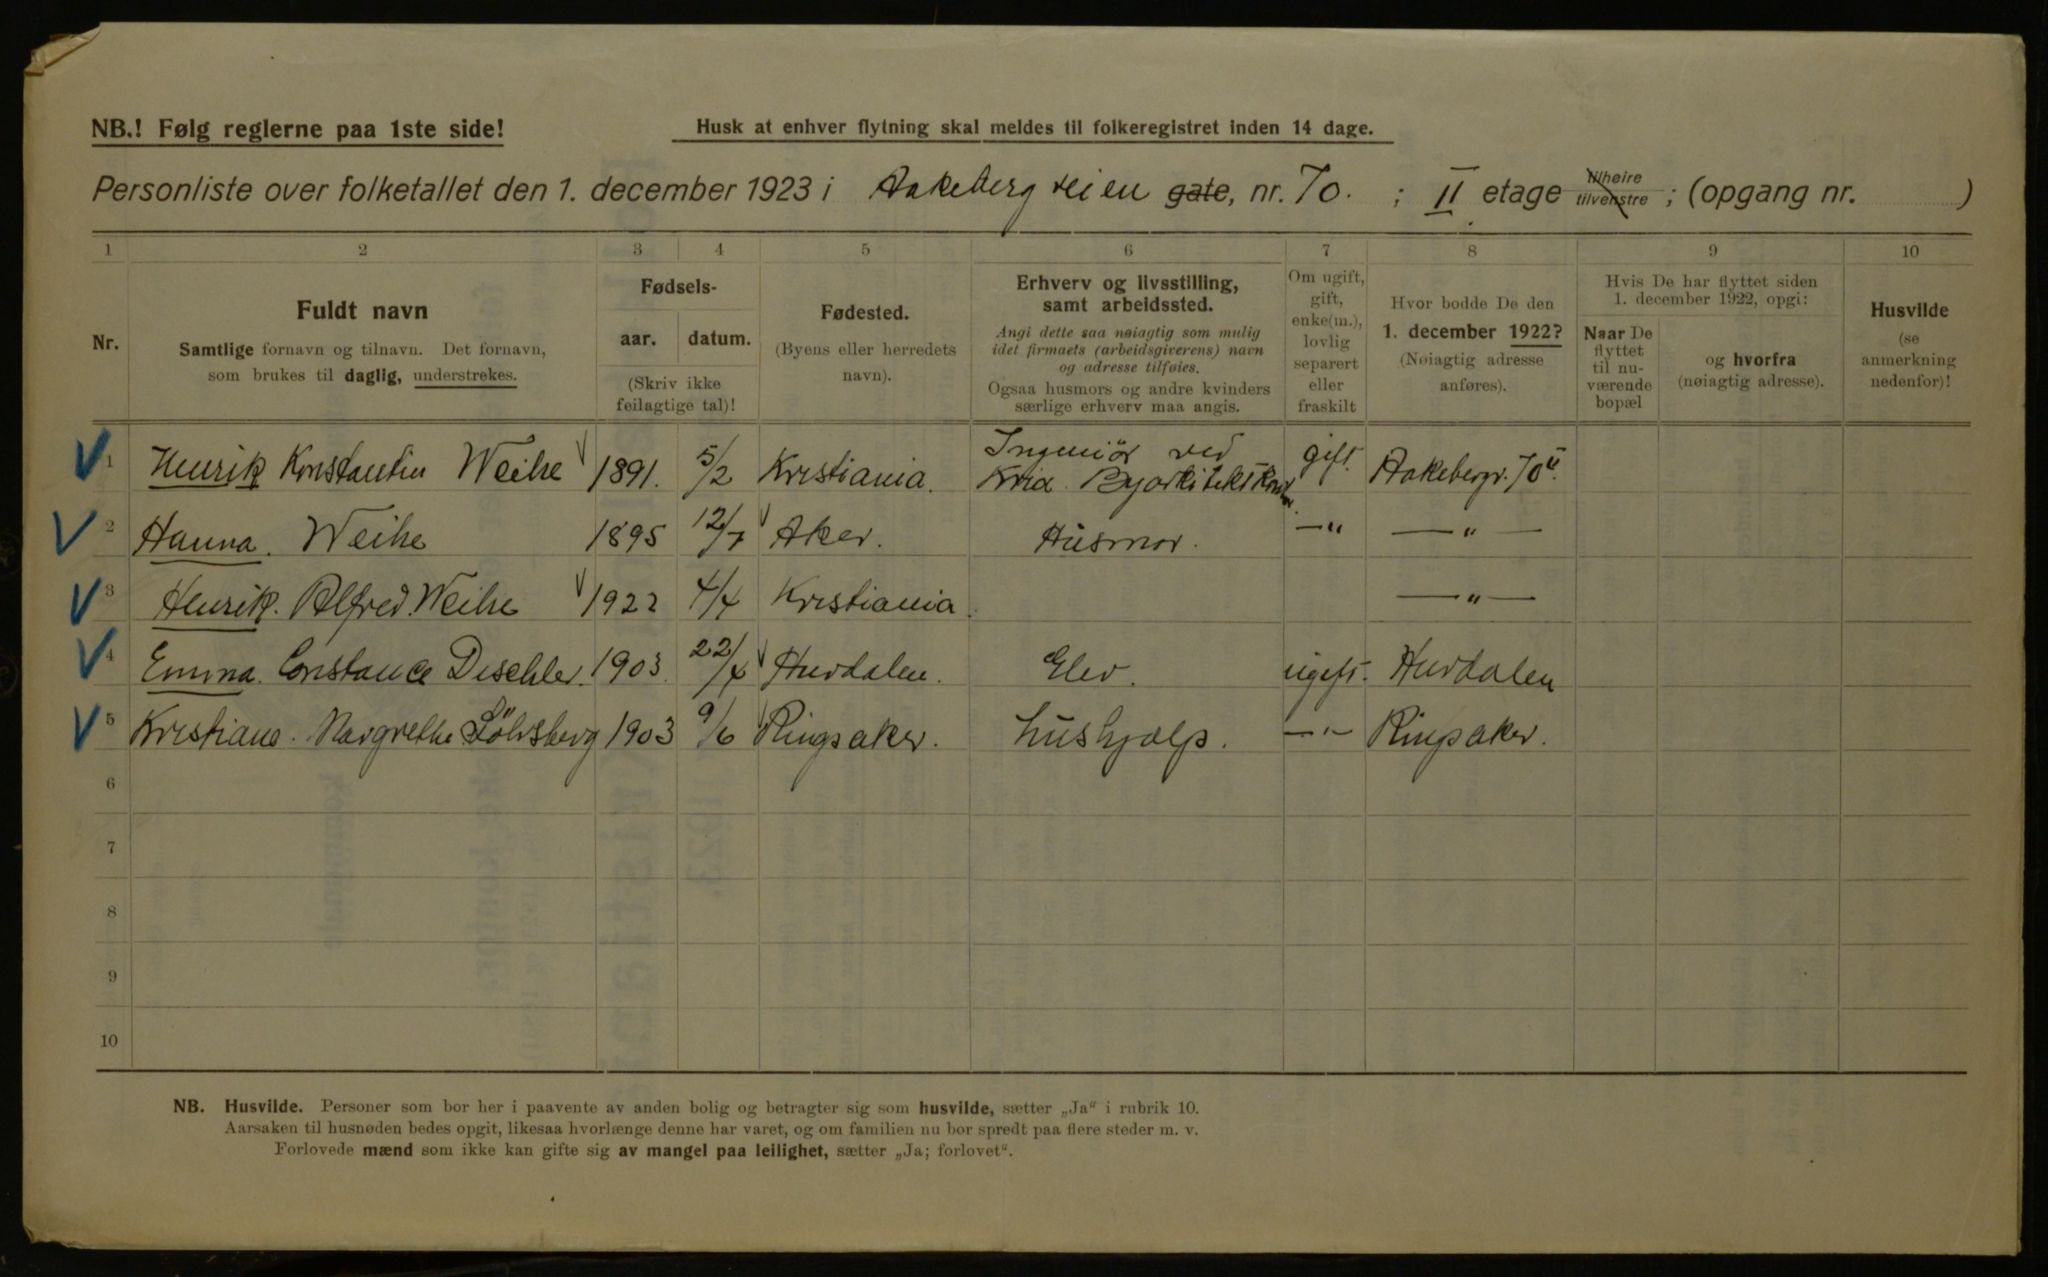 NB.! Følg reglerne paa 1ste side!
Husk at enhver flytning skal meldes til folkeregistret inden 14 dage.
Personliste over folketallet den 1. december 1923 i Aakebergveien gate, nr. 70. ; II etage tilheire tilvenstre ; (opgang nr. )
1 2 3 4 5 6 7 8 9 10
Nr.
Fuldt navn
Samtlige fornavn og tilnavn. Det fornavn,
som brukes til daglig, understrekes.
Fødsels-
aar. datum.
(Skriv ikke
feilagtige tal)!
Fødested.
(Byens eller herredets
navn).
Erhverv og livsstilling,
samt arbeidssted.
Angi dette saa nøiagtig som mulig
idet firmaets (arbeidsgiverens) navn
og adresse tilføies.
Ogsaa husmors og andre kvinders
særlige erhverv maa angis.
Om ugift,
gift,
enke(m.),
lovlig
separert
eller
fraskilt
Hvor bodde De den
1. december 1922?
(Nøiagtig adresse
anføres).
Hvis De har flyttet siden
1. december 1922, opgi:
Naar De
flyttet
til nu-
værende
bopæl
og hvorfra
(nøiagtig adresse).
Husvilde
(se
anmerkning
nedenfor)!
1 Henrik Konstantin Weihe 1891. 5/2 Kristiania. Ingeniör ved Kria Byarkitektkontor. gift. Aakebergv. 70 II.
2 Hanna. Weihe 1895 12/7 Aker. Husmor. —"— —"—
3 Henrik. Alfred. Weihe 1922 4/4 Kristiania. —"—
4 Emma. Constance Deschler. 1903. 22/4 Hurdalen. Elev. ugift. Hurdalen
5 Kristiane. Margrethe 1903 9/6 Ringsaker. hushjælp. —"— Ringsaker.
6
7
8
9
10
NB. Husvilde. Personer som bor her i paavente av anden bolig og betragter sig som husvilde, sætter „Ja“ i rubrik 10.
Aarsaken til husnøden bedes opgit, likesaa hvorlænge denne har varet, og om familien nu bor spredt paa flere steder m. v.
Forlovede mænd som ikke kan gifte sig av mangel paa leilighet, sætter „Ja; forlovet“.